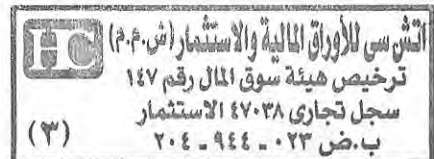 اتش سى للأوراق المالية والاستثمار (ش.م.م) HC
ترخيص هيئة سوق المال رقم ١٤٧
سجل تجارى ٤٧٠٣٨ الاستثمار
ب.ض ٠٢٣ ـ ٩٤٤ ـ ٢٠٤
(٣)